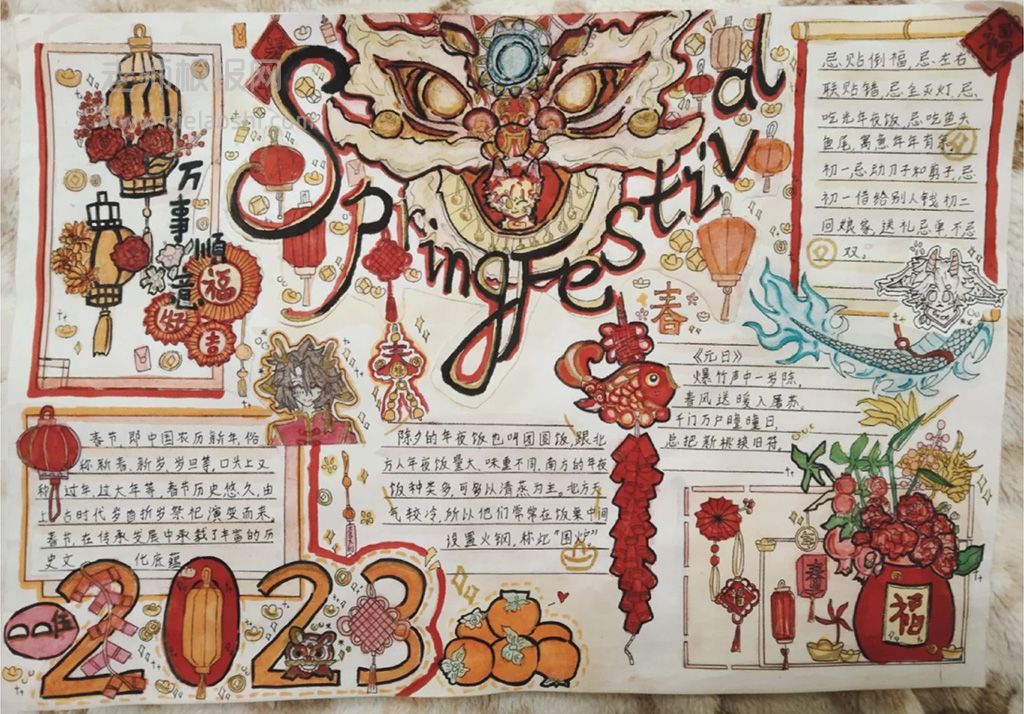 Spring Festival
万事顺意
福
吉
福
忌贴倒福,忌左右
联贴错,忌全灭灯,忌
吃光年夜饭,忌吃鱼头
鱼尾,寓意年年有余
初一,忌动刀子和剪子,忌
初一借给别人钱,初二
回娘家,送礼忌单不忌
双。
春
春
《元日》
爆竹声中一岁除,
春风送暖入屠苏。
千门万户曈曈日,
总把新桃换旧符。
春节,即中国农历新年,俗
称新春、新岁、岁旦等,口头上又
称过年、过大年等,春节历史悠久,由
上古时代岁首祈岁祭祀演变而来。
春节,在传承发展中承载了丰富的历
史文化底蕴
除夕的年夜饭也叫团圆饭,跟北
方人年夜饭量大、味重不同,南方的年夜
饭种类多,可多以清蒸为主。北方天
气较冷,所以他们常常在饭桌中间
设置火锅,称此"围炉"
2023
春
福